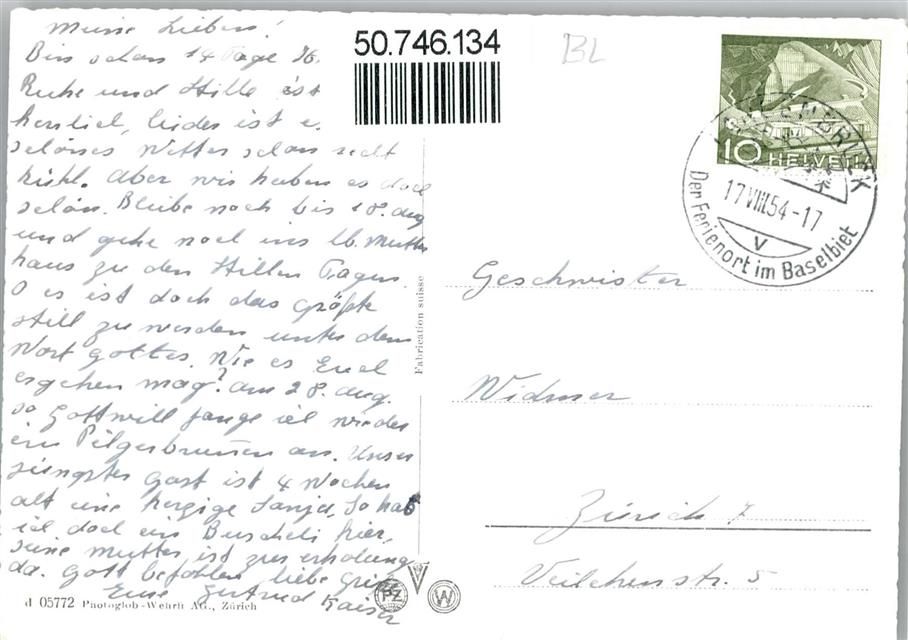 Meine Lieben!
Bin schon 14 Tage
Ruhe und Stille ist
herrlich, leider ist
schönes Wetter schon recht
kühl. Aber wir haben es doch
schön. Bleibe noch bis 18. Aug
und gehe noch ins lb. Mutter
haus zu den Stillen Tagen
O es ist doch das Größte
still zu werden unter dem
Wort Gottes. Wie es Euch
ergehen mag? am 28. Aug.
so Gott will fange ich wieder
im Pilgerbrunnen an. Unser
jüngster Gast ist 4 Wochen
alt eine herzige Sonja, So hab
ich doch ein Buscheli hier,
seine Mutter ist zur Erholung
da. Gott befohlen liebe Grüße
Eure Gertrud Kaiser
50.746.134
BL
10 HELVETIA
17.VIII.54-17
V
Der Ferienort im Baselbiet
Geschwister
Widmer
Zürich 7
Veilchenstr. 5
Fabrication suisse
d 05772 Photoglob-Wehrli AG., Zürich
PZ
W